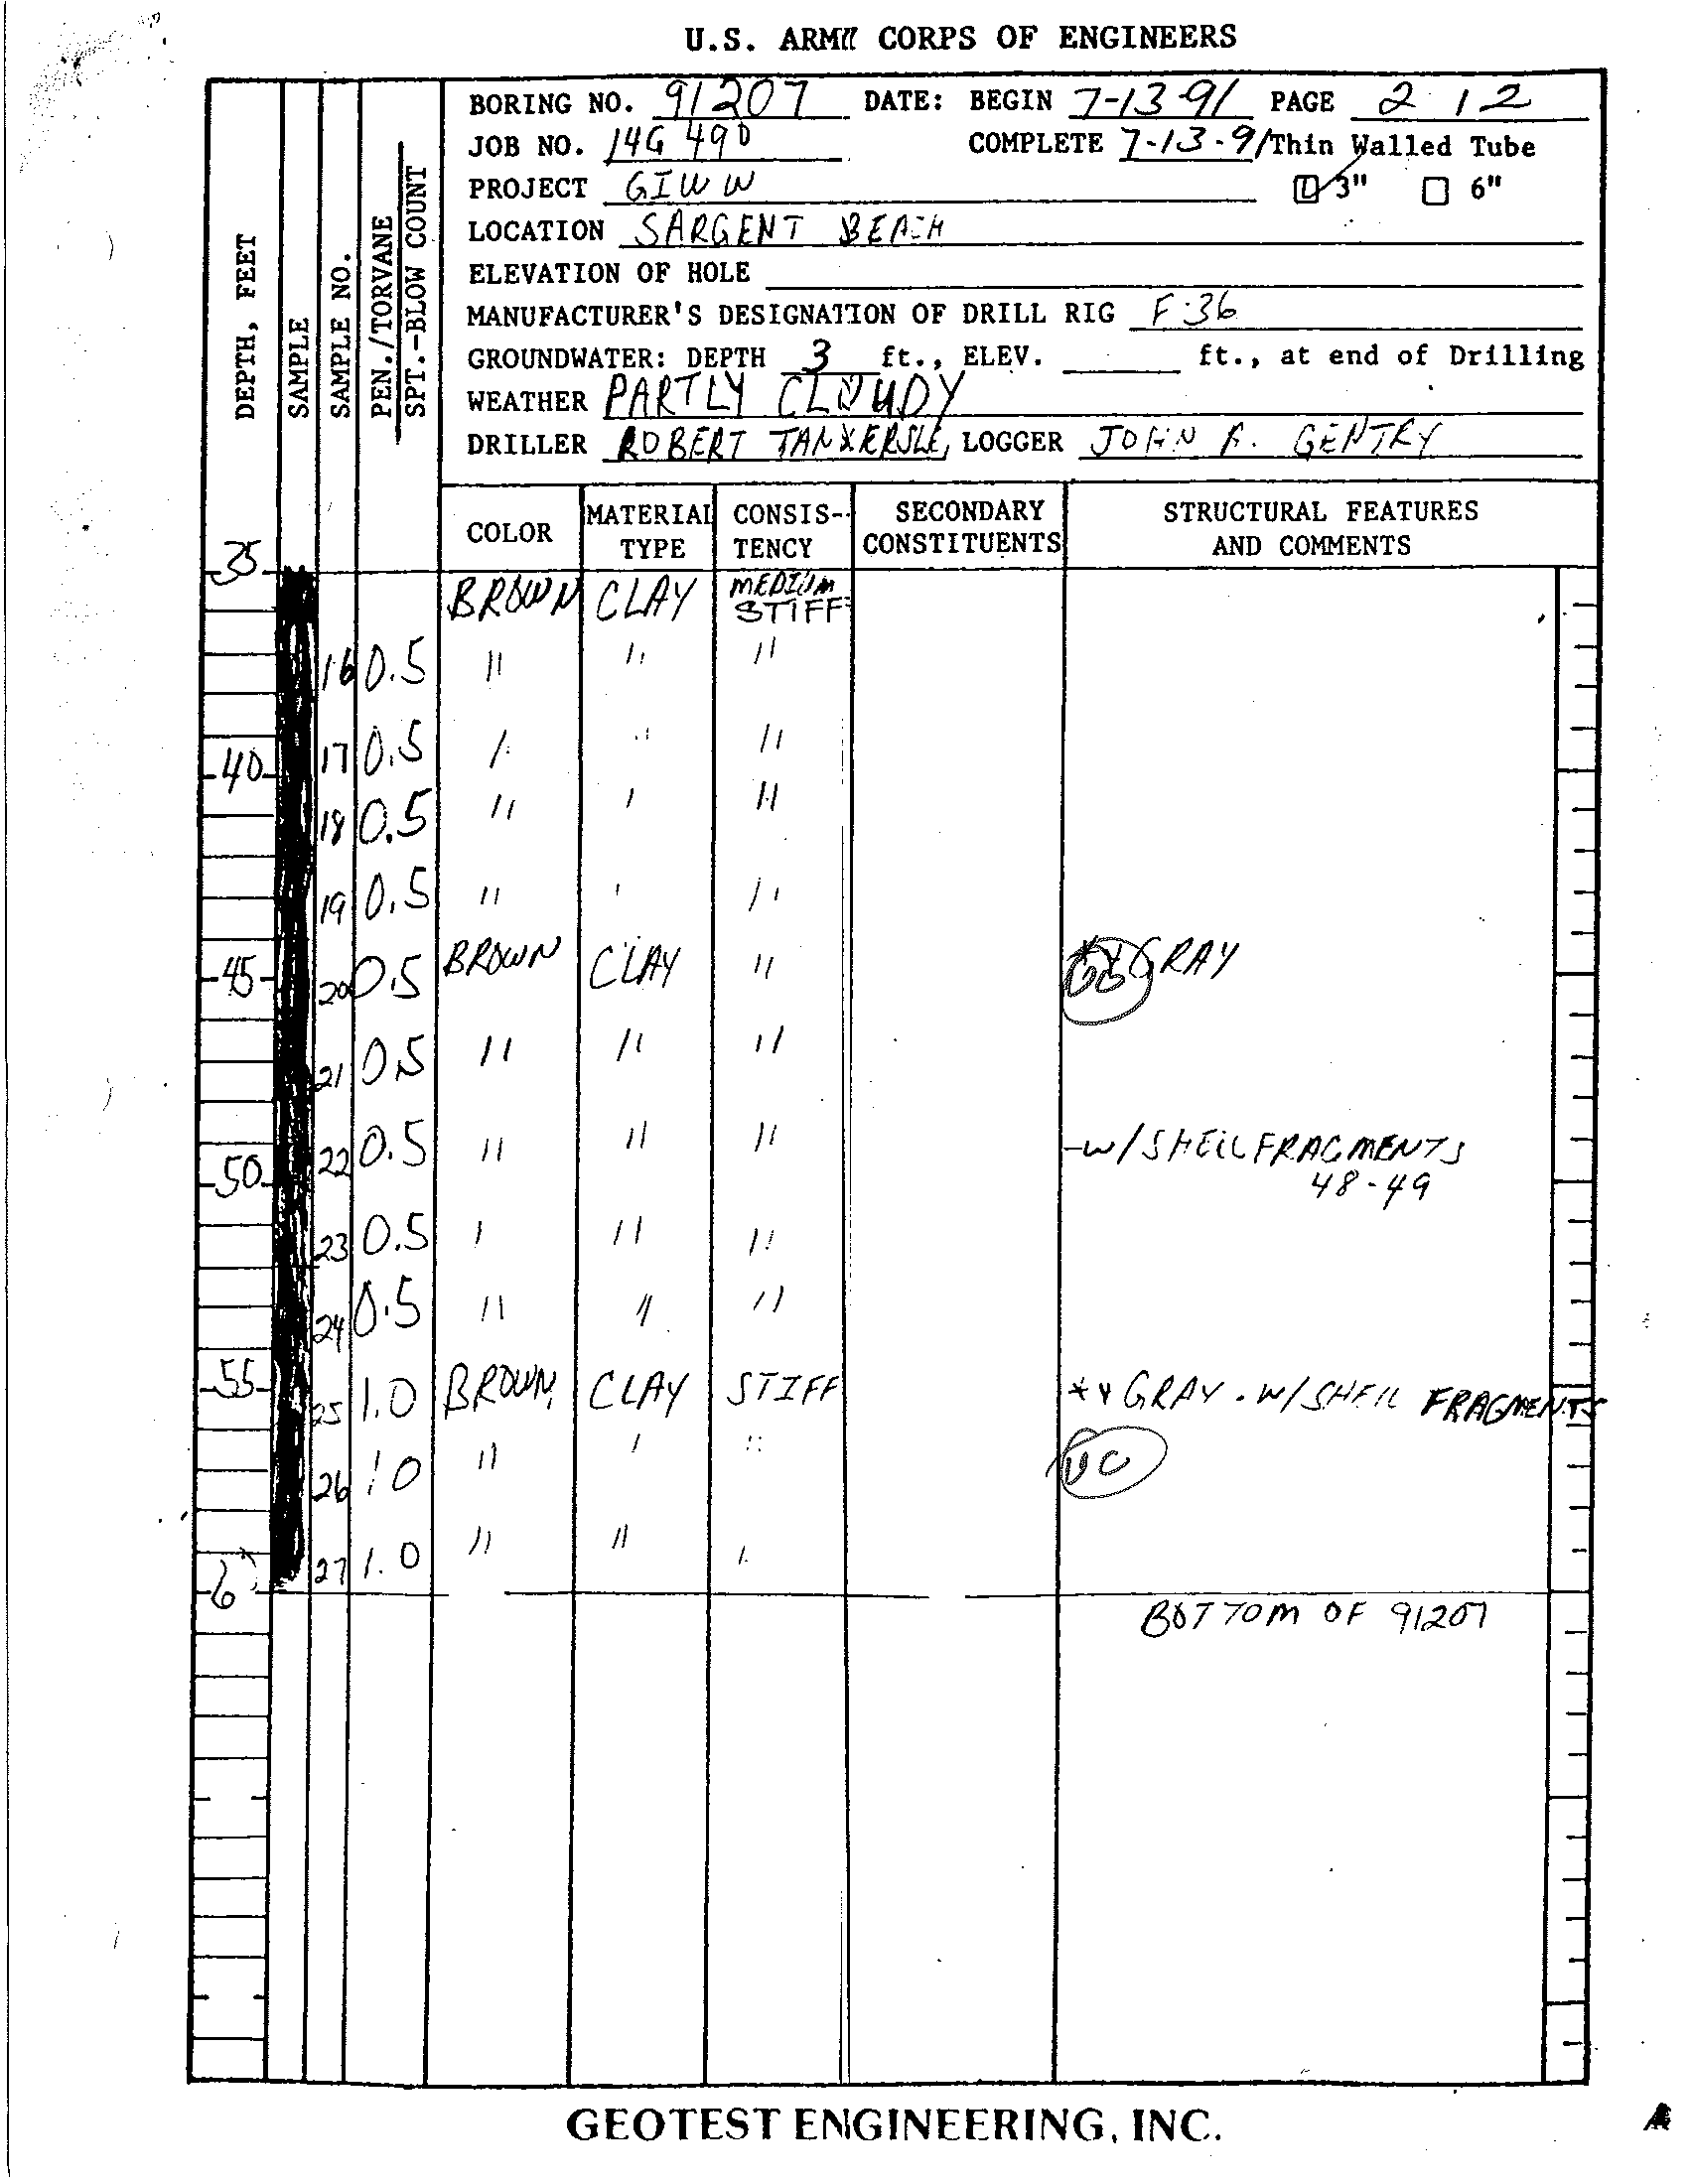 U.S. ARMY CORPS OF ENGINEERS
BORING NO. 91207 DATE: BEGIN 7-13-91 PAGE 2 / 2
JOB NO. 14G 490 COMPLETE 7-13-91 Thin Walled Tube
PROJECT GIWW 3" 6"
LOCATION SARGENT BEACH
ELEVATION OF HOLE
MANUFACTURER'S DESIGNATION OF DRILL RIG F-36
GROUNDWATER: DEPTH 3 ft., ELEV. ft., at end of Drilling
WEATHER PARTLY CLOUDY
DRILLER ROBERT TANKERSLE, LOGGER JOHN GENTRY
DEPTH, FEET
SAMPLE
SAMPLE NO.
PEN./TORVANE
SPT.-BLOW COUNT
COLOR MATERIAL TYPE CONSIS-TENCY SECONDARY CONSTITUENTS STRUCTURAL FEATURES AND COMMENTS
35
BROWN CLAY MEDIUM STIFF
16 0.5 " " "
17 0.5 " " "
40
18 0.5 " " "
19 0.5 " " "
45 20 0.5 BROWN CLAY " GRAY
21 0.5 " " "
22 0.5 " " " -W/SHELL FRAGMENTS
50 48-49
23 0.5 " " "
24 0.5 " " "
55 25 1.0 BROWN CLAY STIFF ** GRAY. W/SHELL FRAGMENTS
26 1.0 " " " UC
27 1.0 " " "
BOTTOM OF 91207
GEOTEST ENGINEERING, INC.